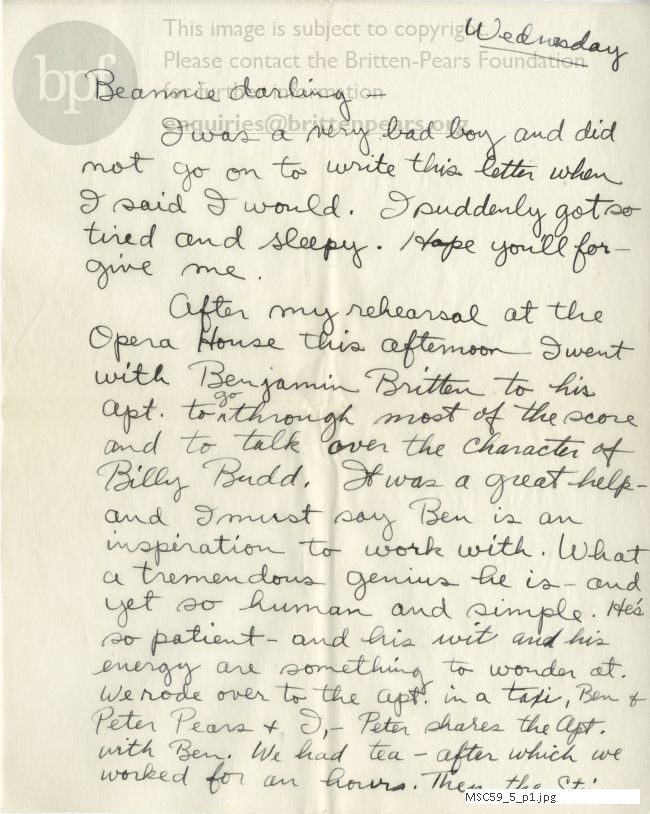 This image is subject to copyright.
Please contact the Britten-Pears Foundation
for further information
enquiries@brittenpears.org
bpf
Wednesday
Beannie darling —
I was a very bad boy and did
not go on to write this letter when
I said I would. I suddenly got so
tired and sleepy. Hope you'll for-
give me.
After my rehearsal at the
Opera House this afternoon I went
with Benjamin Britten to his
apt. to go through most of the score
and to talk over the character of
Billy Budd. It was a great help-
and I must say Ben is an
inspiration to work with. What
a tremendous genius he is - and
yet so human and simple. He's
so patient - and his wit and his
energy are something to wonder at.
We rode over to the apt. in a taxi, Ben &
Peter Pears & I, - Peter shares the Apt.
with Ben. We had tea - after which we
worked for an hours. Then the
MSC59_5_p1.jpg